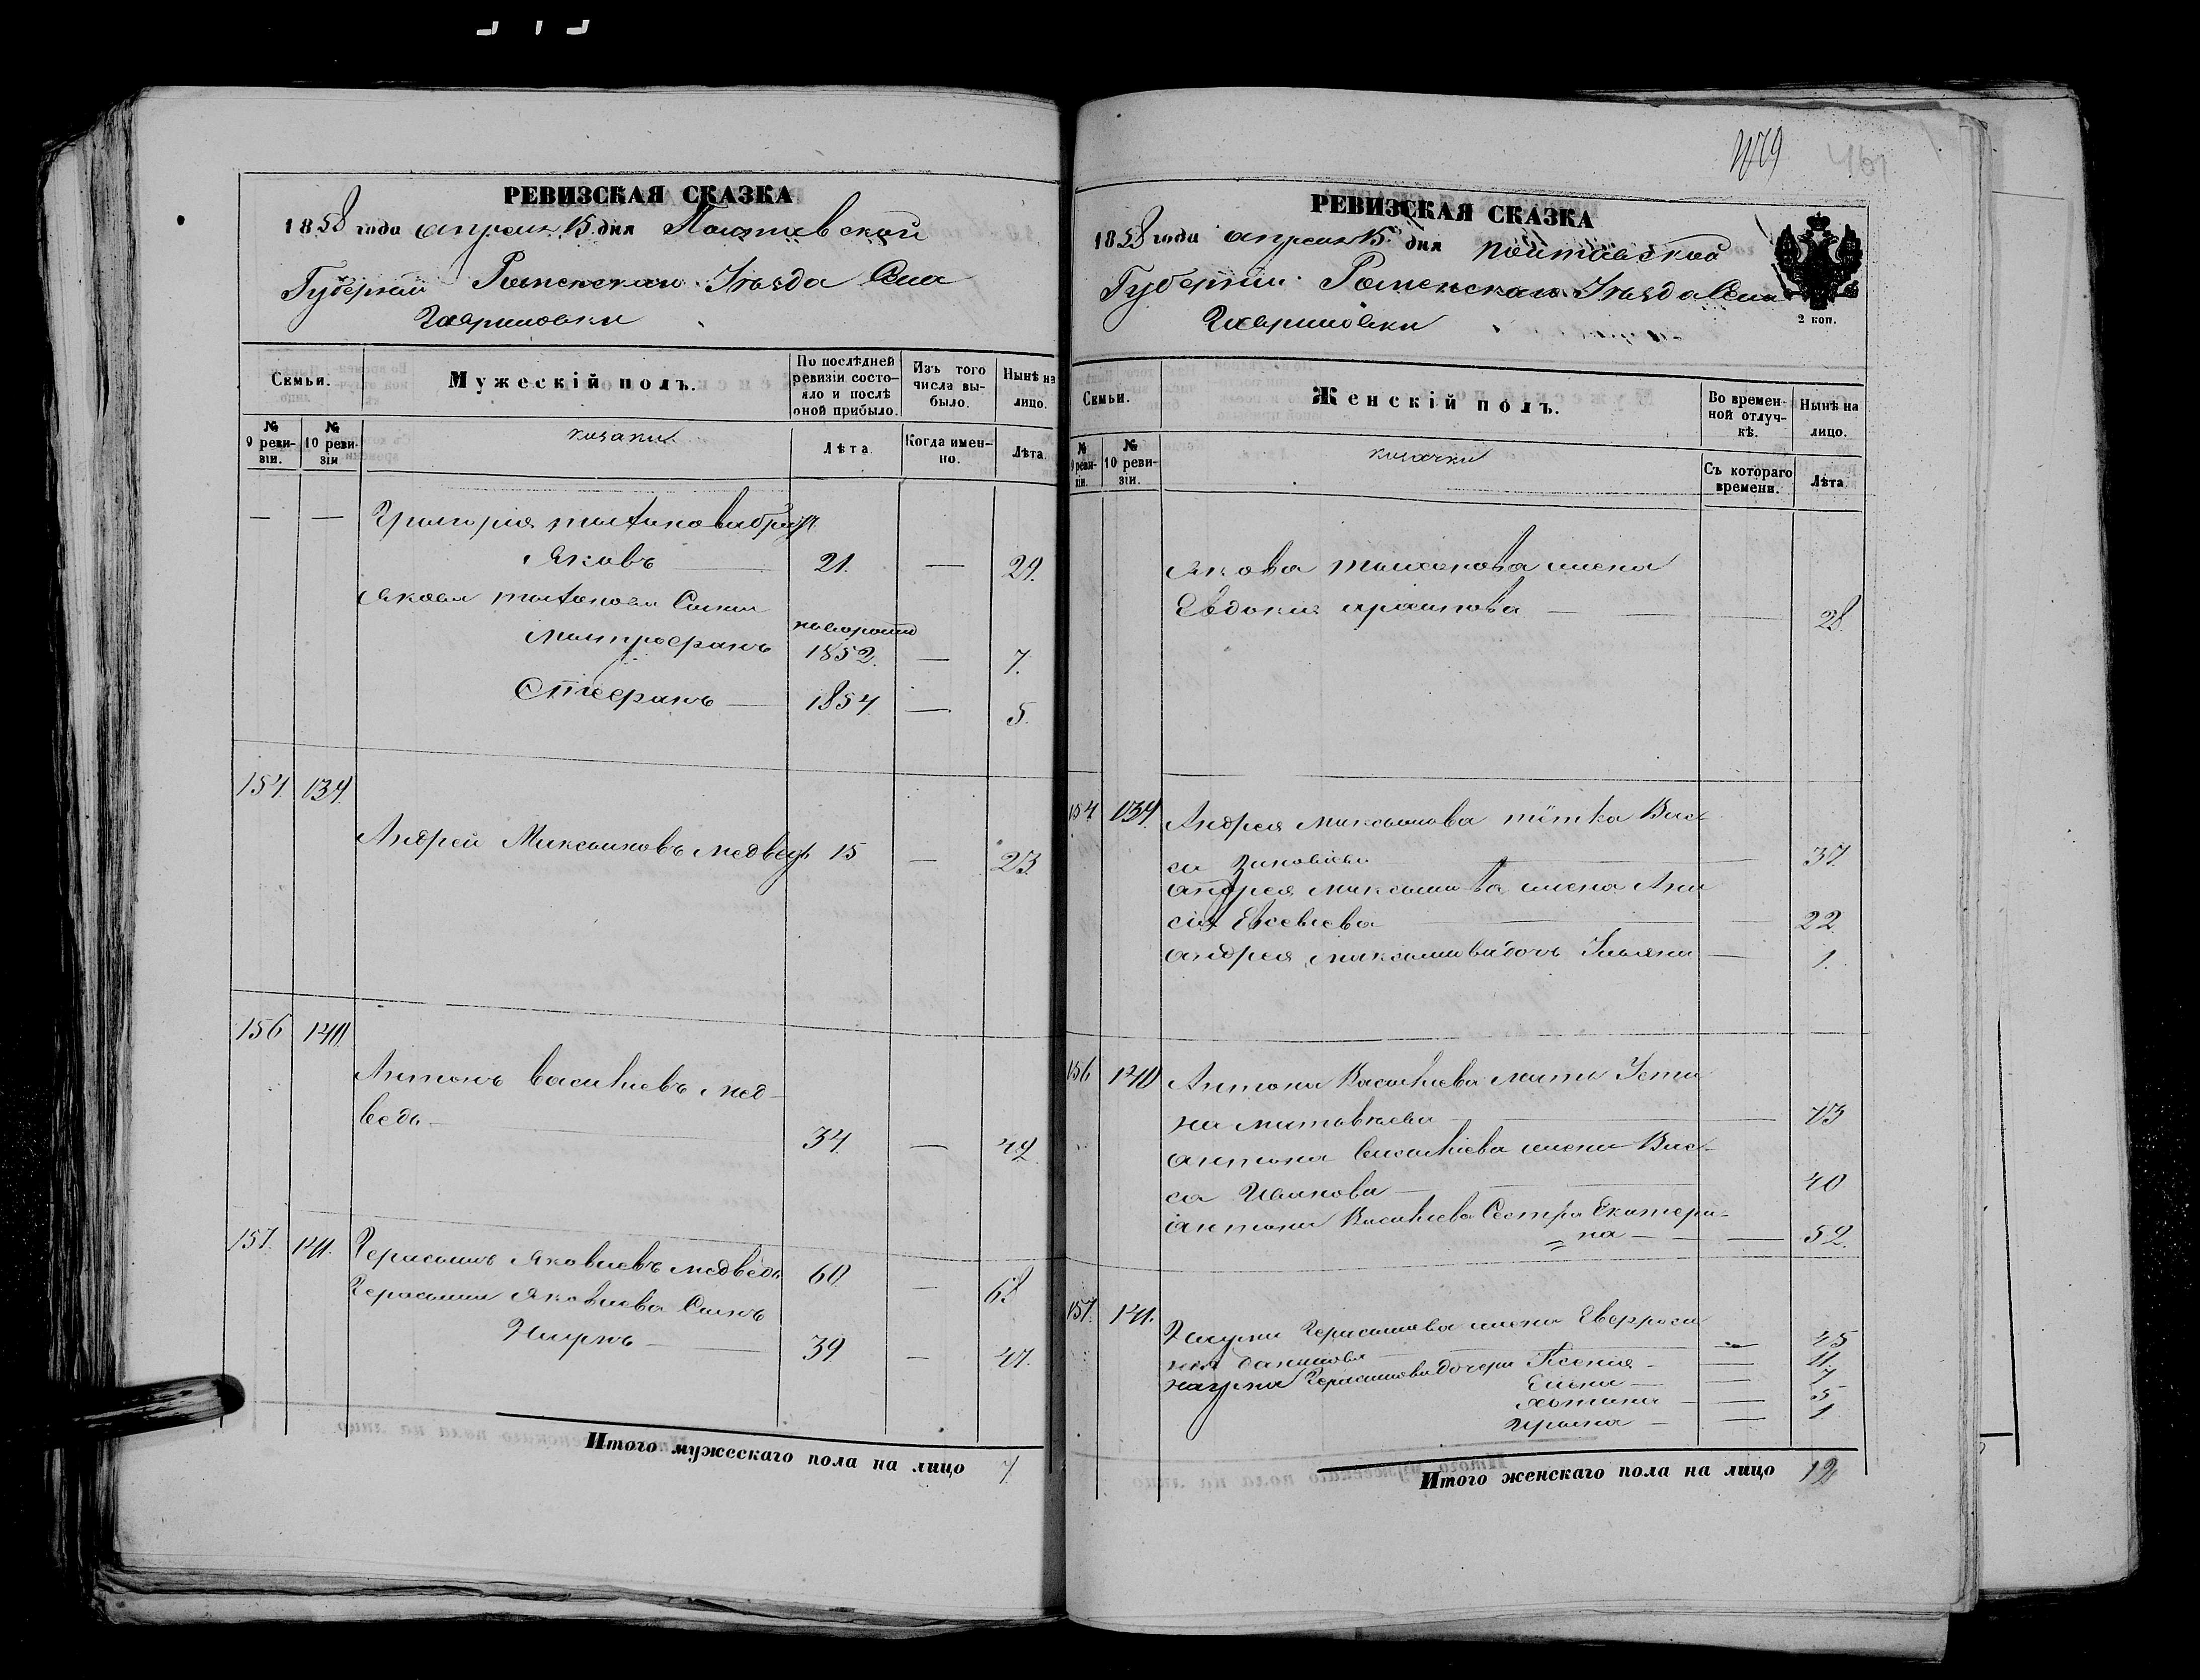 РЕВИЗСКАЯ СКАЗКА
1858 года апреля 15 дня Полтавской
Губернии Роменскаго Уѣзда Села
Гавриловки
Семьи.
Мужескій полъ.
По послѣдней ревизіи состояло и послѣ оной прибыло.
Изъ того числа выбыло.
Нынѣ на лицо.
№ 9 ревизіи.
№ 10 ревизіи
козаки
Лѣта
Когда именно.
Лѣта.
— — Григорія братъ
Яковъ — 21. — 29.
Якова Сыны
Митрофанъ новорожд 1852. — 7.
Стефанъ — 1854 — 5.
154. 139.
Андрей Максимовъ Медведь 15 — 23
156 140
Антонъ Васильевъ Мед-
ведь — 34. — 42.
157. 141. Герасимъ Яковлевъ Медведь 60 — 68
Герасима Яковлева Сынъ
Наумъ — 39 — 47.
Итого мужескаго пола на лицо 7
479
461
РЕВИЗСКАЯ СКАЗКА
1858 года апреля 15 дня Полтавской
Губернии Роменскаго Уѣзда Села
Гавриловки
2 коп.
Семьи.
Женскій полъ.
Во временной отлучкѣ.
Нынѣ на лицо.
№ 9 ревизіи.
№ 10 ревизіи.
козачки
Съ котораго времени.
Лѣта
Якова жена
Евдокия — — 28.
154 139. Андрея Максимова тётка Вас-
са Зиновіева — — 37.
Андрея Максимова жена Ани
сія Евсевіева — — 22.
Андрея Максимова дочь Ульяна — 1.
156 140 Антона Васильева мать Усти
на — — 73
Антона Васильева жена Вас-
са Иванова — — 40
Антона Васильева Сестра Екатери-
= на — — 52.
157. 141. Наума Герасимова жена Евфроси
нія Данилова — — 45
Наума Герасимова дочери Ксенія — — 11.
Елена — — 7
— — 5
Ирина — — 1
Итого женскаго пола на лицо 12